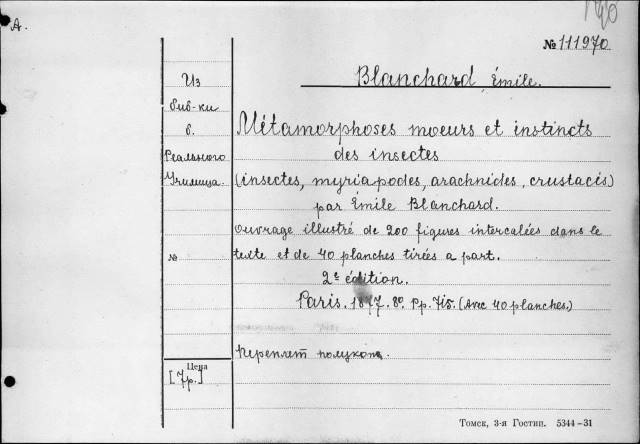 А.
№ 111970
Blanchard, Émile.
Из
биб-ки
б.
Реального
Училища.
Métamorphoses moeurs et instincts
des insectes
(insectes, myriapodes, arachnides, crustacés)
par Émile Blanchard.
Ouvrage illustré de 200 figures intercalées dans le
texte et de 40 planches tirées a part.
№
2e édition.
Paris. 1877. 8o. Pp. 715. (Avec 40 planches.)
Переплет полукож.
Цена
[7р.]
Томск, 3-я Гостип. 5344–31